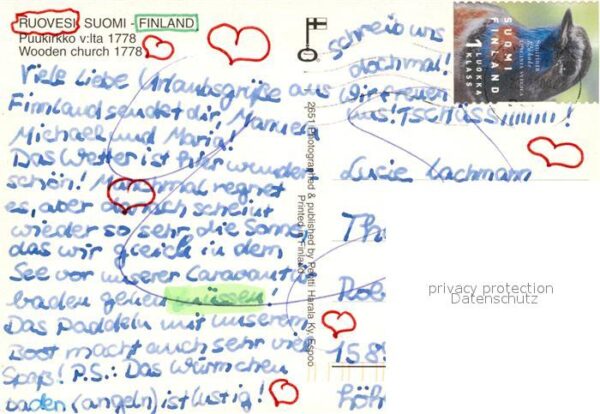 RUOVESI SUOMI - FINLAND
Puukirkko v:lta 1778
Wooden church 1778
Viele liebe Urlaubsgrüße aus
Finnland sendet dir, Manuel
Michael und Maria!
Das Wetter ist hier wunder
schön! Manchmal regnet
es, aber danach scheint
wieder so sehr die Sonne,
das wir gleich in dem
See vor unserer Caravantür
baden gehen müssen!
Das Paddeln mit unserem
Boot macht auch sehr viel
Spaß! P.S.: Das Würmchen
baden (angeln) ist lustig!
2651 Photographed & published by Pentti Harala Ky, Espoo
Printed in Finland
schreib uns
dochmal!
Wir freuen
uns! TSCHÜSS!!!!!!!!!
SUOMI
FINLAND
1 LUOKKA
KLASS
Lucie Lachmann
Th
Rob
15.89
Röhr
privacy protection
Datenschutz